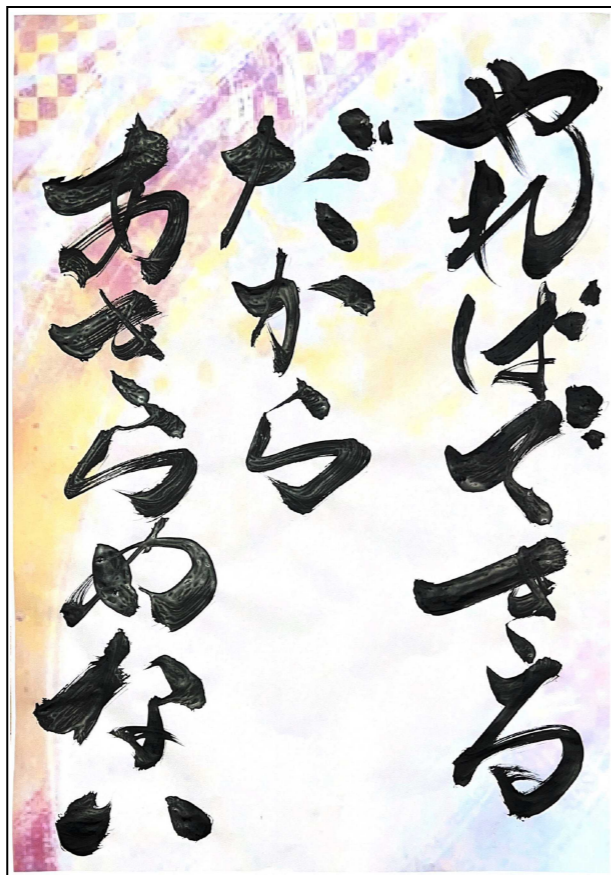 やればできる
だから
あきらめない